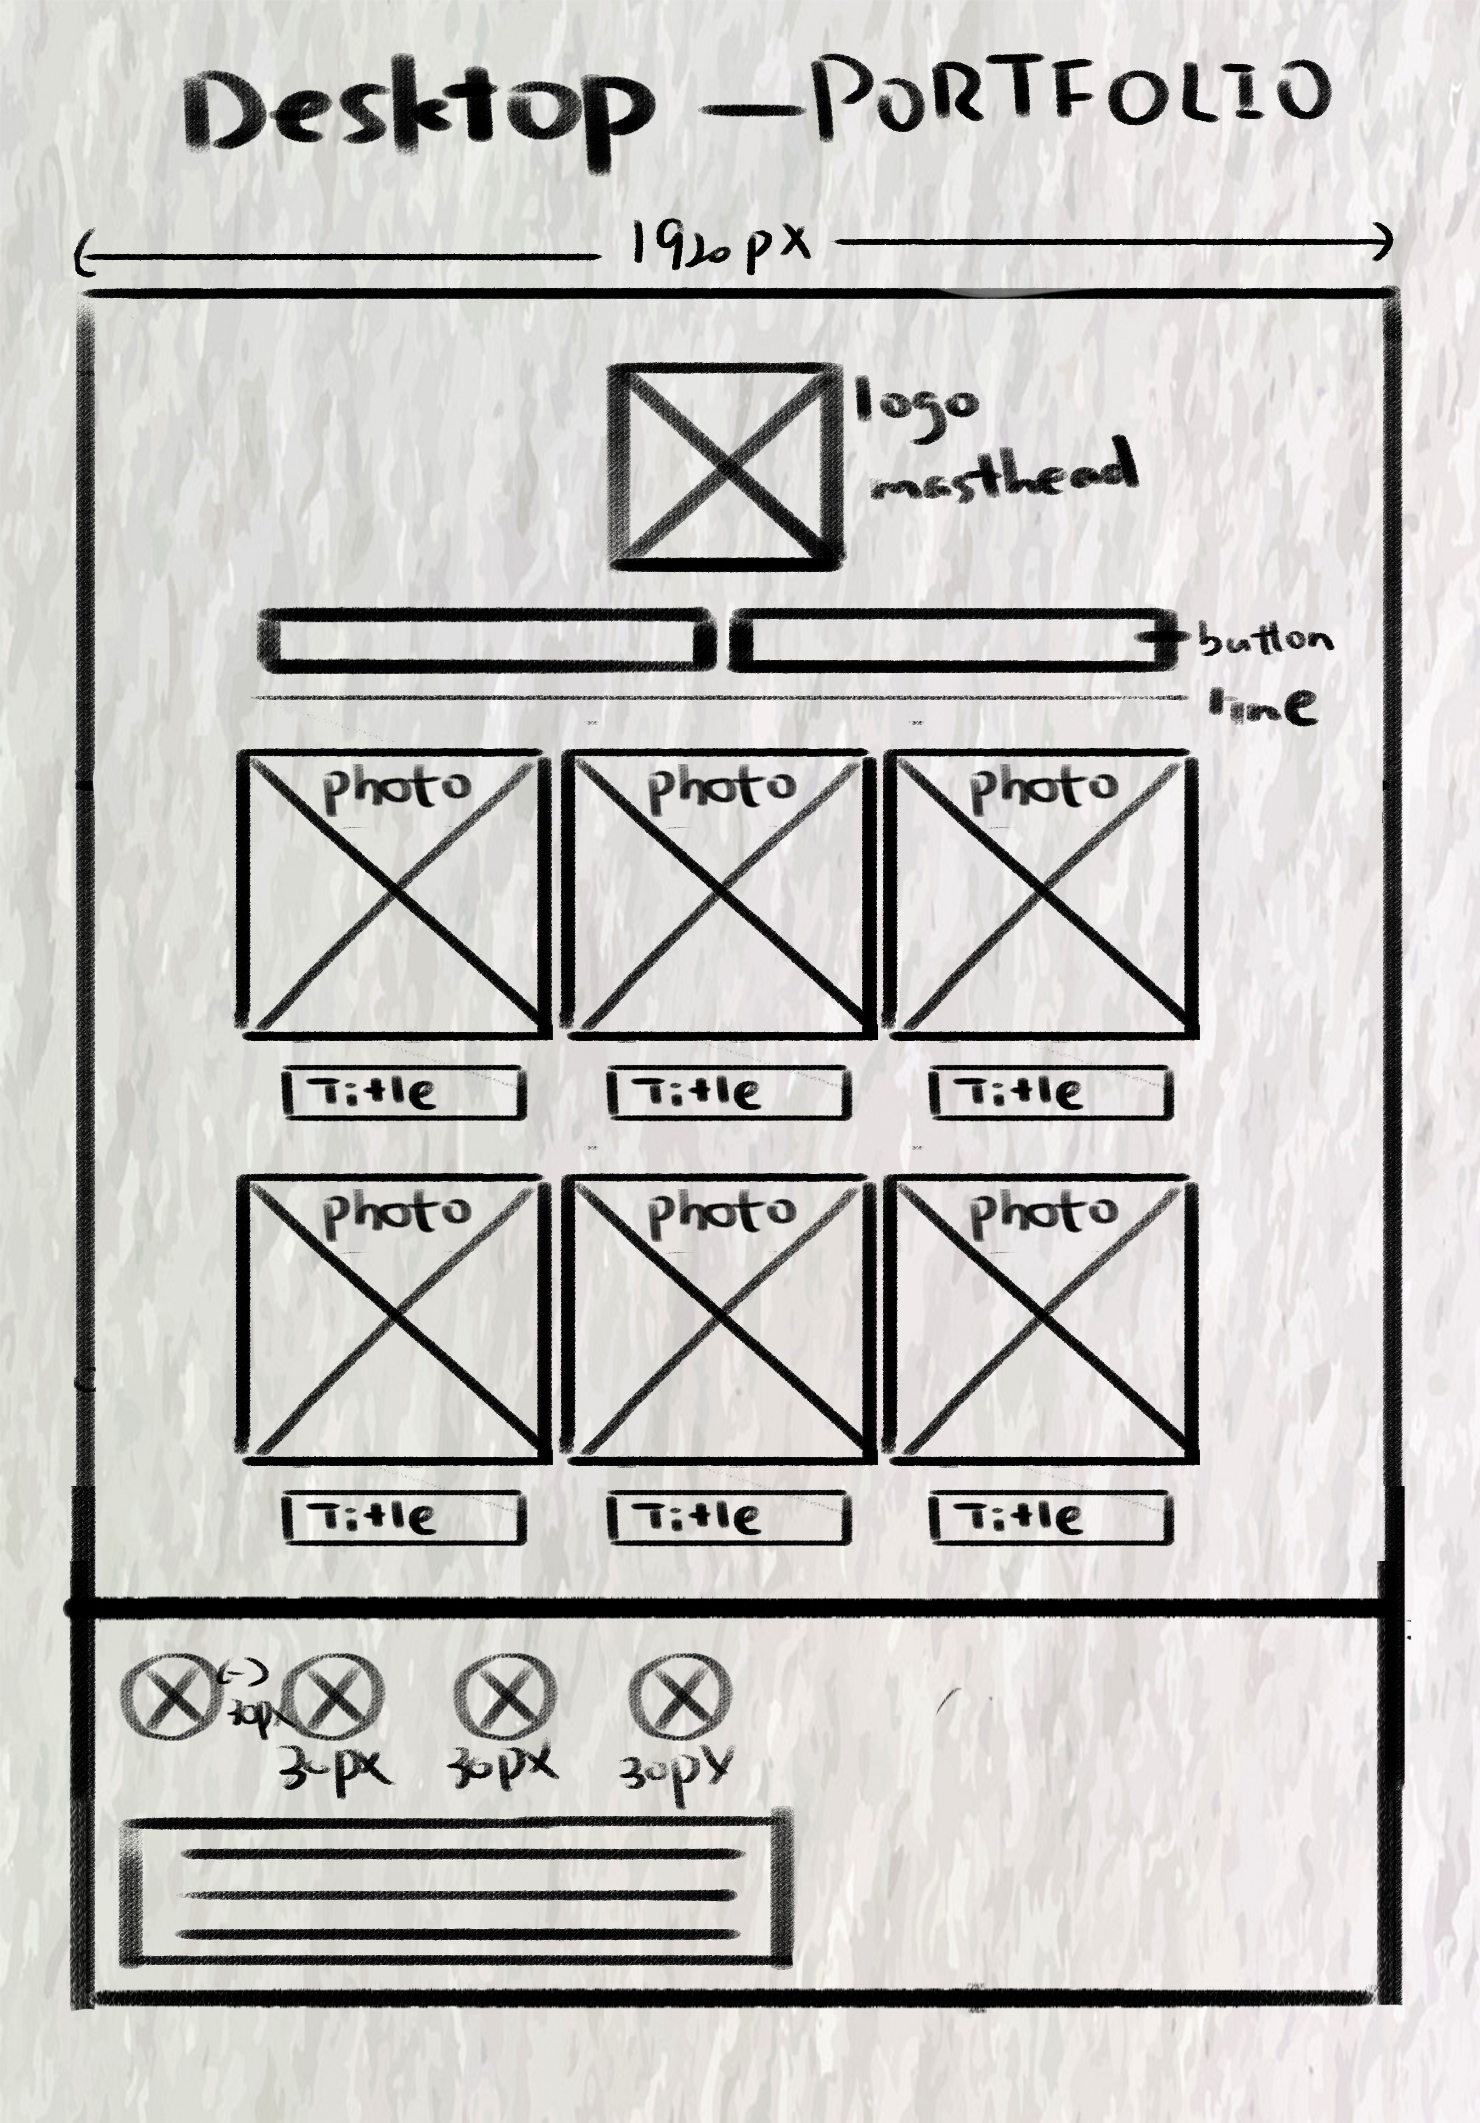 Desktop — PORTFOLIO
1920px
logo
masthead
button
line
photo photo photo
Title Title Title
photo photo photo
Title Title Title
30px 30px 30px